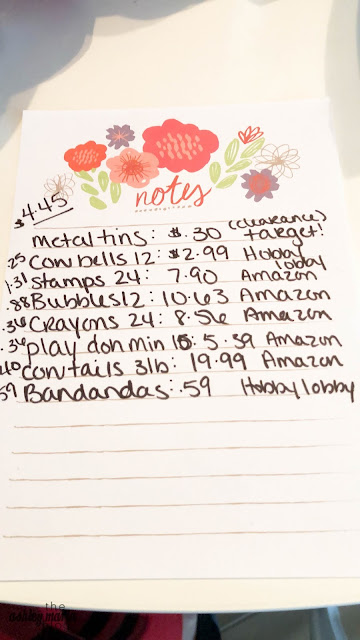 notes
$4.45
metal tins: $.30 (clearance) target!
.25 Cow bells 12: $2.99 Hobby lobby
1.31 Stamps 24: 7.90 Amazon
.88 Bubbles 12: 10.63 Amazon
.36 Crayons 24: 8.56 Amazon
.36 play doh min 15: 5.39 Amazon
cowtails 3lb: 19.99 Amazon
.59 Bandandas: .59 Hobby lobby
the